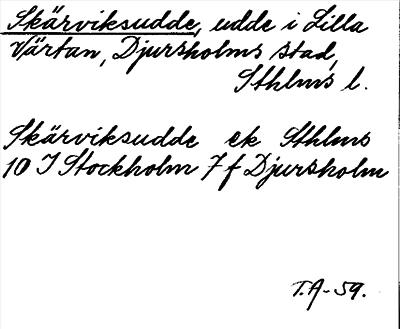 Skärviksudde, udde i Lilla
Värtan, Djursholms stad,
Sthlms l.
Skärviksudde ek Sthlms
10 I Stockholm 7 f Djursholm
T.A-59.